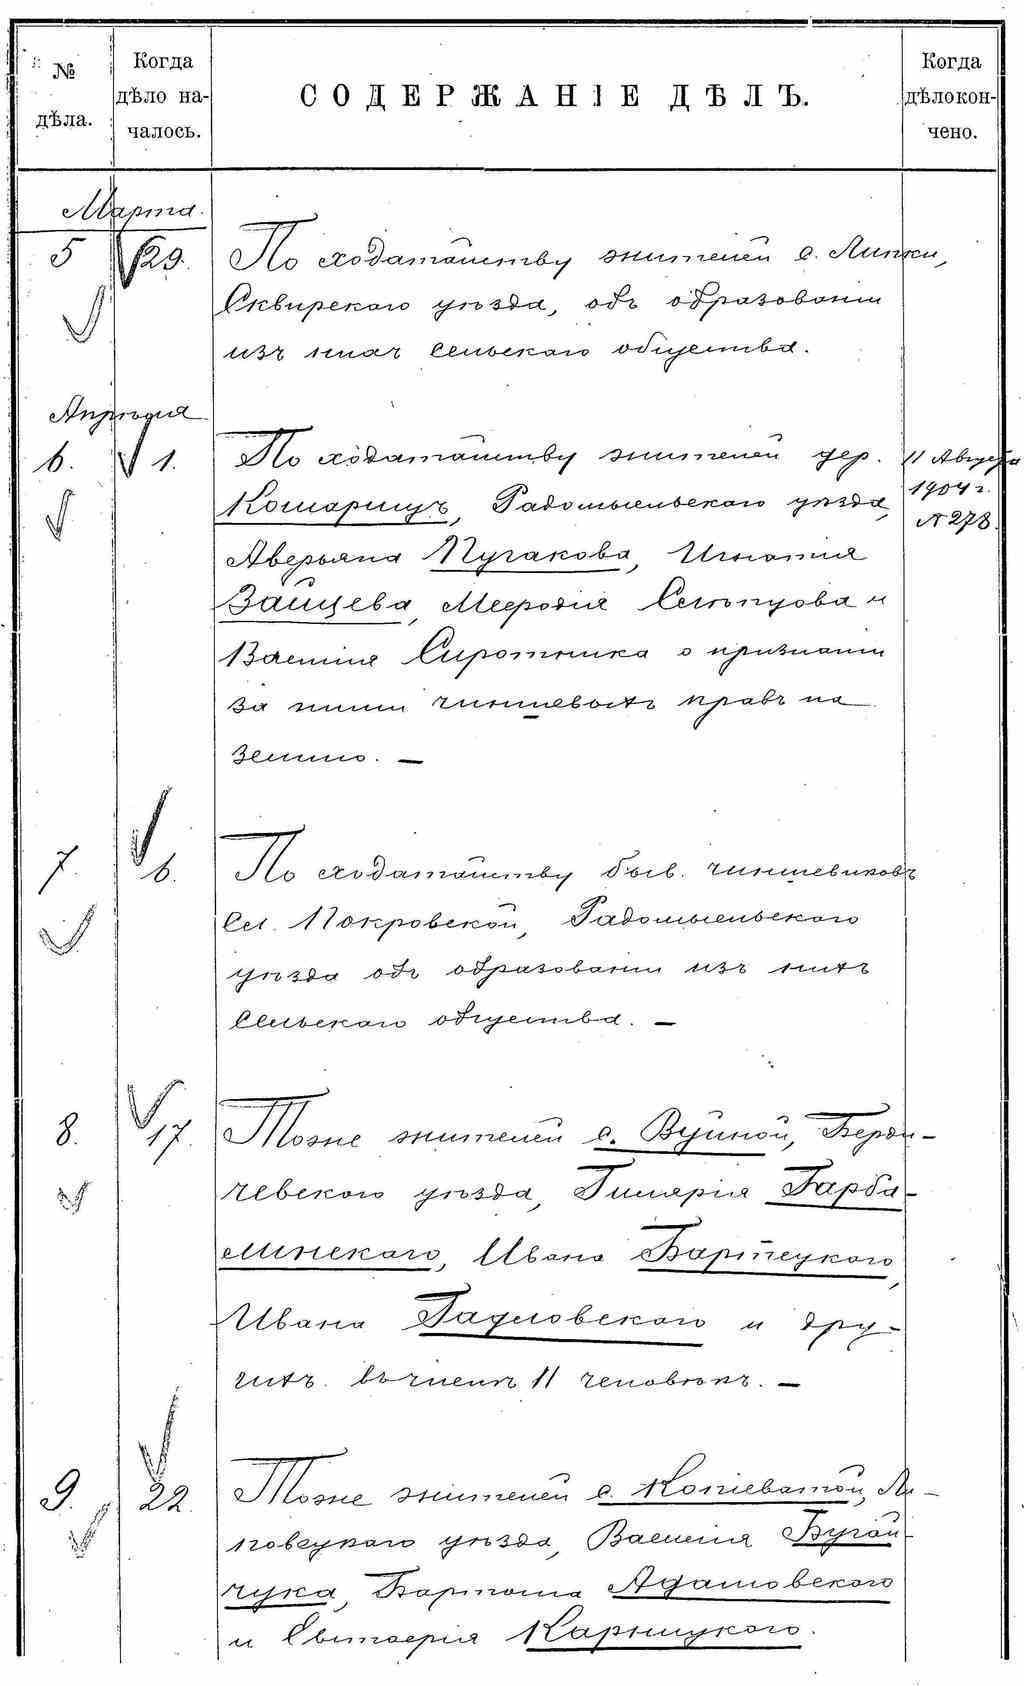 № дѣла.
Когда дѣло на-
чалось.
СОДЕРЖАНІЕ ДѢЛЪ.
Когда дѣло кон-
чено.
Марта.
5 29. По ходатайству жителей с. Липки,
Сквирскаго уѣзда, объ образованіи
изъ нихъ сельскаго общества.
Апрѣля
6. 1. По ходатайству жителей дер. 11 Августа
Кошарищъ, Радомысльскаго уѣзда, 1904 г.
№ 278.
Аверьяна Пугакова, Игнатія
Зайцева, Мееродія Слѣпцова и
Василія Сиротника о признаніи
за ними чиншевыхъ правъ на
землю. —
7. 6. По ходатайству быв. чиншевиковъ
сел. Покровской, Радомысльскаго
уѣзда объ образованіи изъ нихъ
сельскаго общества. —
8. 17. Тоже жителей с. Вуйной, Берди-
чевскаго уѣзда, Гилярія Гарба-
линскаго, Ивана Бартецкого,
Ивана Гадловскаго и дру-
гихъ въ числѣ 11 человѣкъ. —
9. 22. Тоже жителей с. Копіеватой, Ли-
повецкаго уѣзда, Василія Бугай-
чука, Бартоша Адамовскаго
и Евтиѳерія Карницкого.